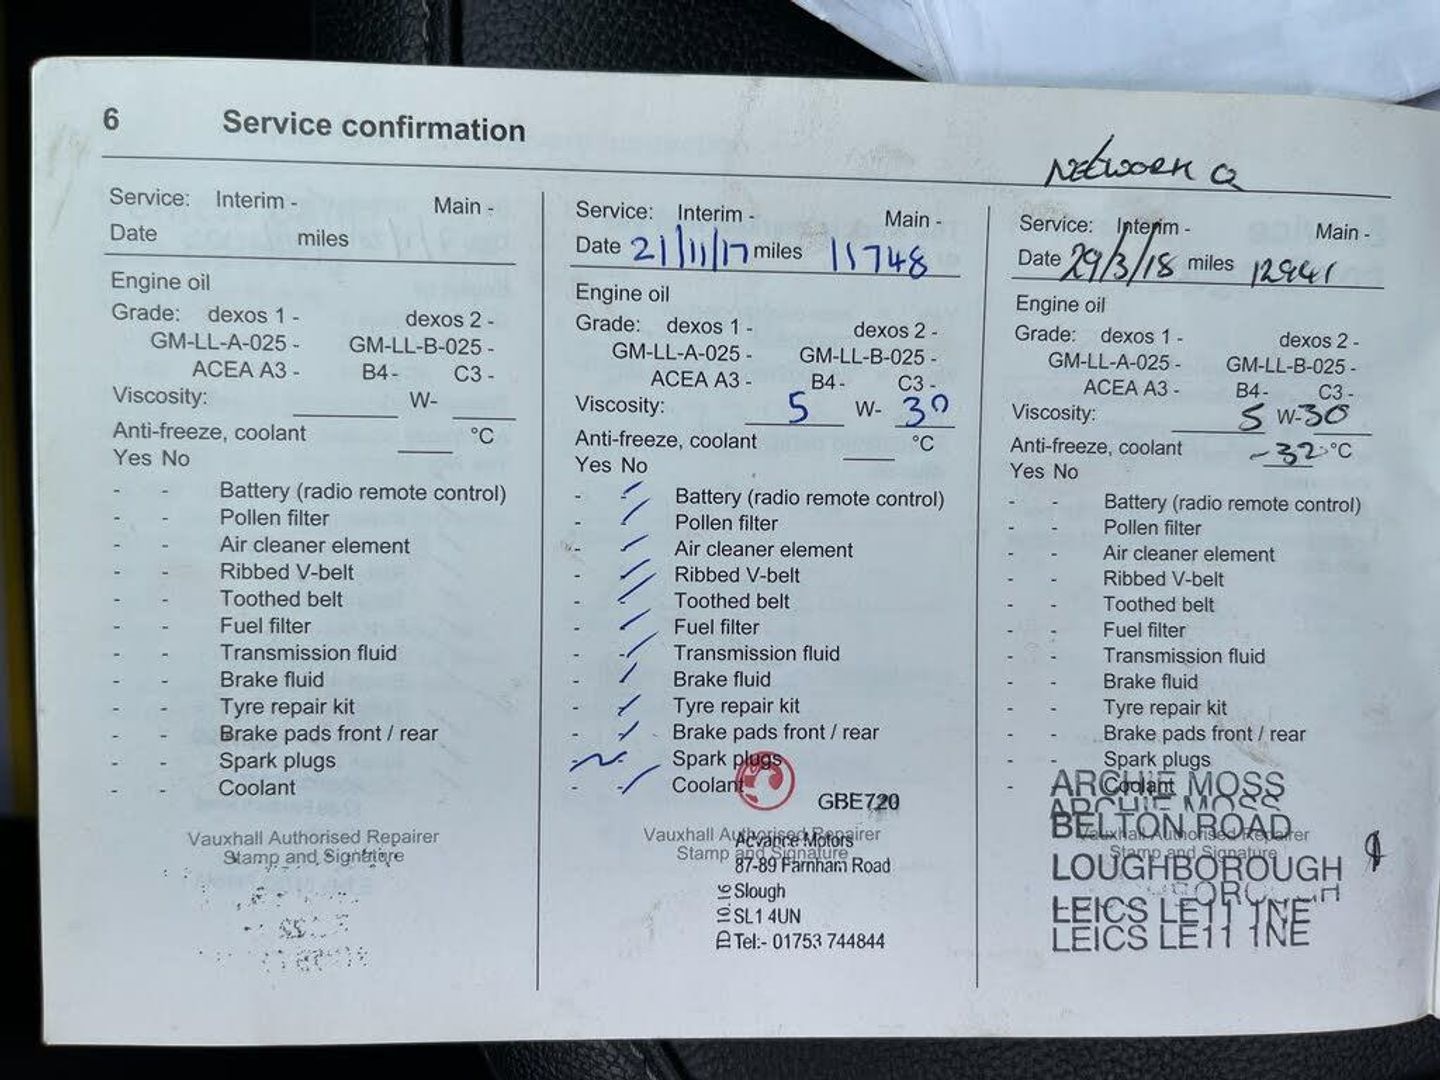 6 Service confirmation
NETWORK Q
Service: Interim - Main -
Date miles
Engine oil
Grade: dexos 1 - dexos 2 -
GM-LL-A-025 - GM-LL-B-025 -
ACEA A3 - B4- C3 -
Viscosity: W-
Anti-freeze, coolant °C
Yes No
- - Battery (radio remote control)
- - Pollen filter
- - Air cleaner element
- - Ribbed V-belt
- - Toothed belt
- - Fuel filter
- - Transmission fluid
- - Brake fluid
- - Tyre repair kit
- - Brake pads front / rear
- - Spark plugs
- - Coolant
Vauxhall Authorised Repairer
Stamp and Signature
Service: Interim - Main -
Date 21/11/17 miles 11748
Engine oil
Grade: dexos 1 - dexos 2 -
GM-LL-A-025 - GM-LL-B-025 -
ACEA A3 - B4- C3 -
Viscosity: 5 W- 30
Anti-freeze, coolant °C
Yes No
- Battery (radio remote control)
- Pollen filter
- Air cleaner element
- Ribbed V-belt
- Toothed belt
- Fuel filter
- Transmission fluid
- Brake fluid
- Tyre repair kit
- Brake pads front / rear
- Spark plugs
- Coolant
GBE720
Vauxhall Authorised Repairer
Stamp and Signature
Advance Motors
87-89 Farnham Road
Slough
SL1 4UN
Tel:- 01753 744844
D10.16
Service: Interim - Main -
Date 29/3/18 miles 12941
Engine oil
Grade: dexos 1 - dexos 2 -
GM-LL-A-025 - GM-LL-B-025 -
ACEA A3 - B4- C3 -
Viscosity: 5 W-30
Anti-freeze, coolant -32 °C
Yes No
- - Battery (radio remote control)
- - Pollen filter
- - Air cleaner element
- - Ribbed V-belt
- - Toothed belt
- - Fuel filter
- - Transmission fluid
- - Brake fluid
- - Tyre repair kit
- - Brake pads front / rear
- - Spark plugs
- Coolant
Vauxhall Authorised Repairer
Stamp and Signature
ARCHIE MOSS
ARCHIE MOSS
BELTON ROAD
LOUGHBOROUGH
LEICS LE11 1NE
LEICS LE11 1NE